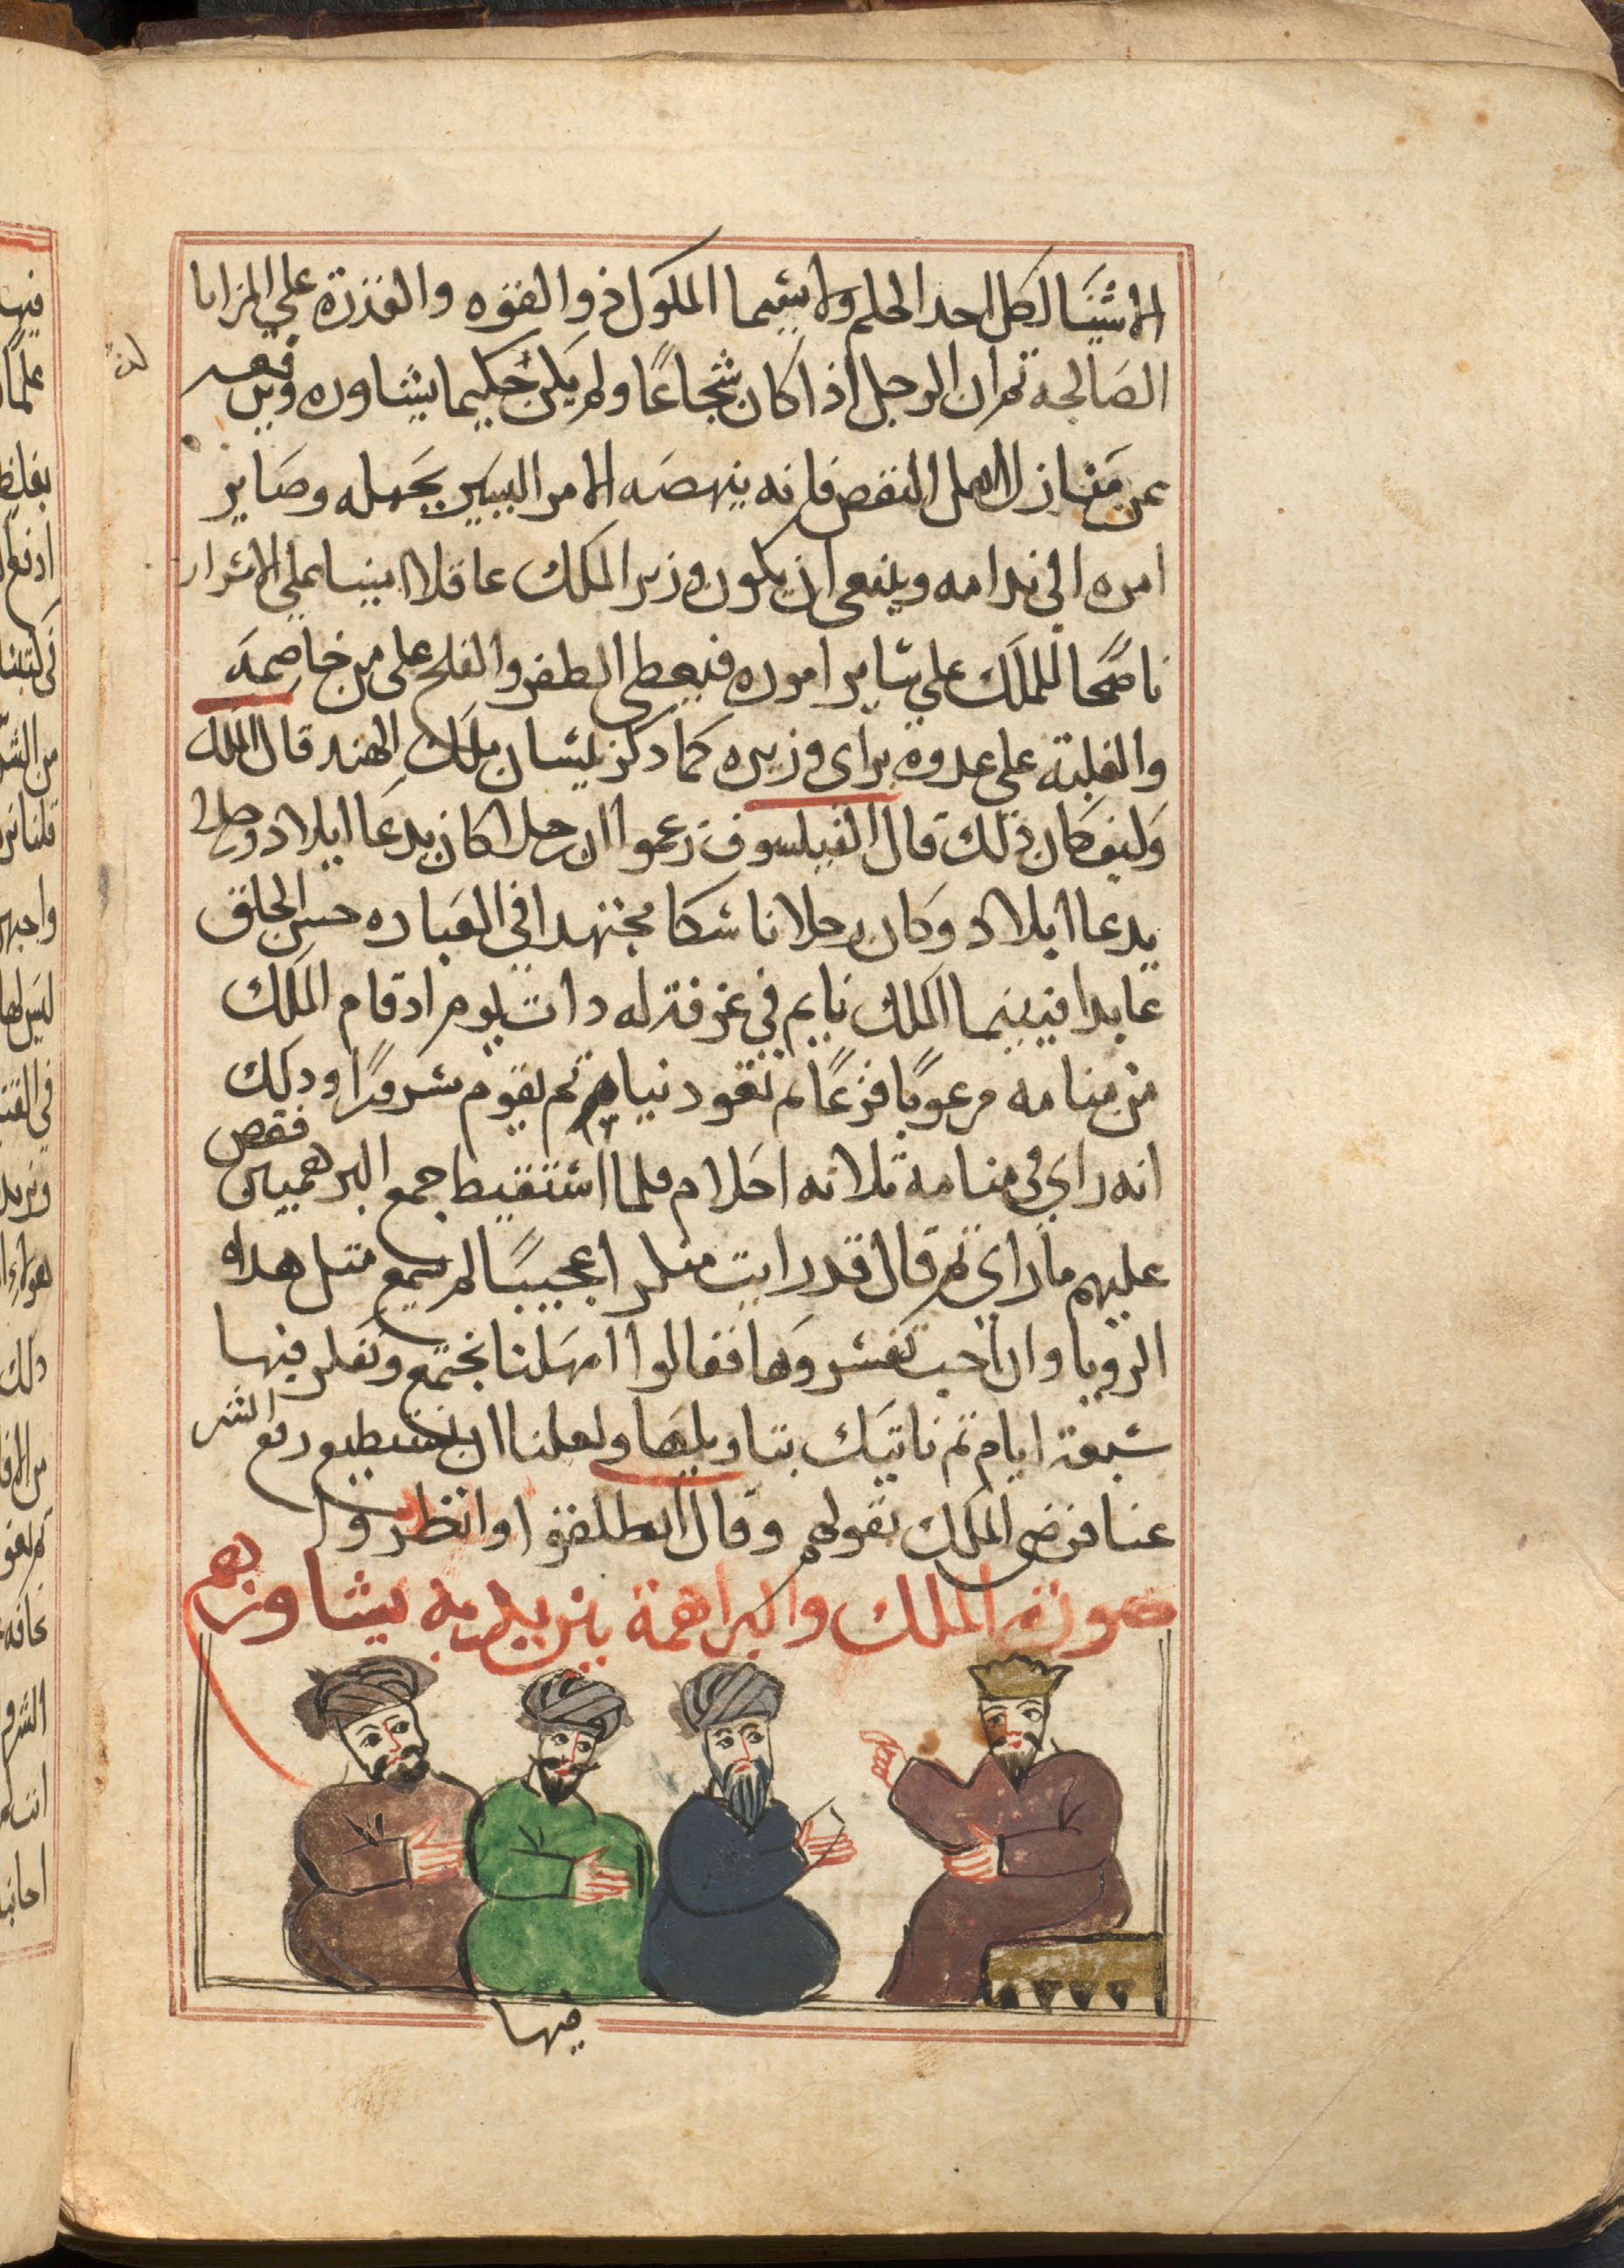 الاشيَا لكل احد الحلم ولاشيما الملوك ذو القوه والقدرة علي المزايا
الصَالحة ثم ان الرجل اذا كان شجاعًا ولم يكن حَكيما يشاوره
عن مَنازل اهل النقص فانه ينهضه الامر اليسَير بجَهله وصَاير
امره الي ندامه وينبغي ان يكون وزير الملك عاقلا امينا علي الاشرار
ناصحًا للمَلك علي شاير اموره فيعطي الظفر والفلح علي من خاصمَه
والغلبة علي عدوه براي وزيره كما دكر بشان ملَك الهند قال الملك
وَكيف كان ذلك قال الفيلسوف زعموا ان رجلا كان يدعَا ايلاد
يدعا ابلاد وَكان رجلا ناشكا مجتهدا في العبَاده حسن الخلق
عابدا فبينما الملك نايم في غرفة له دات يوم اد قام المَلك
من منامه مرعوبًا فزعًا ثم يقوم ودلك
انه راي في منامه ثلاثه احَلام فلما اشتقيط جمع البرهميين فقص
عليهم ما راي ثم قال قد رايت عجيبًا لم يسمع مثل هده
الرويا وانا احب تفشروها فقالوا امهَلنا نجتمع ونفكر فيها
شبعة ايام ثم ناتيَك بتاويلهَا ولعلنا ان نستطيع دفع الشر
عنا فرضي الملك بقولهم وقال انطلقوا وانظروا
صورة الملك والبراهمة بين يديه يشاورهم
فيها